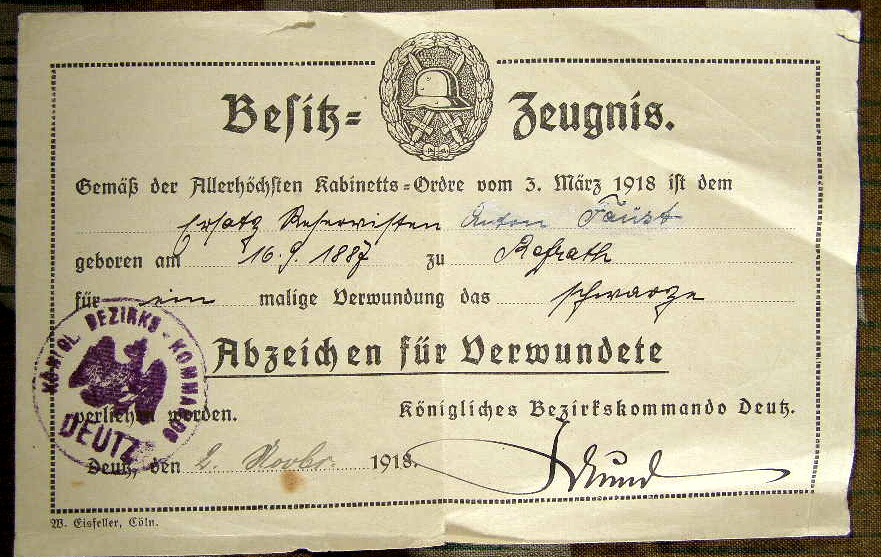 Besitz-Zeugnis.
Gemäß der Allerhöchsten Kabinetts-Ordre vom 3. März 1918 ist dem
Ersatz Reservisten Anton Faust
geboren am 16. 9. 1887 zu Refrath
für ein malige Verwundung das schwarze
Abzeichen für Verwundete
verliehen worden.
Königliches Bezirkskommando Deutz.
Deutz, den 2. Novbr. 1918.
KÖNIGL. BEZIRKS-KOMMANDO
DEUTZ
W. Eisfeller, Cöln.